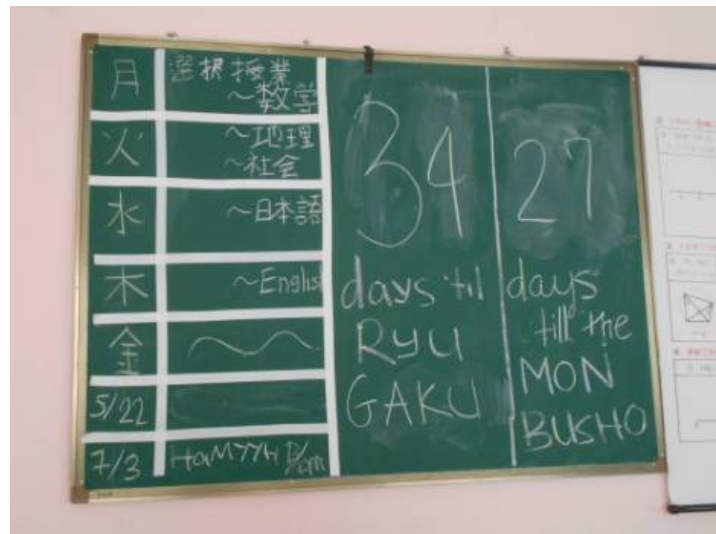 月
選択授業
～数学
火
～地理
～社会
水
～日本語
木
～English
金
5/22
7/3
34
days 'til
RYU
GAKU
27
days
till the
MON
BUSHO